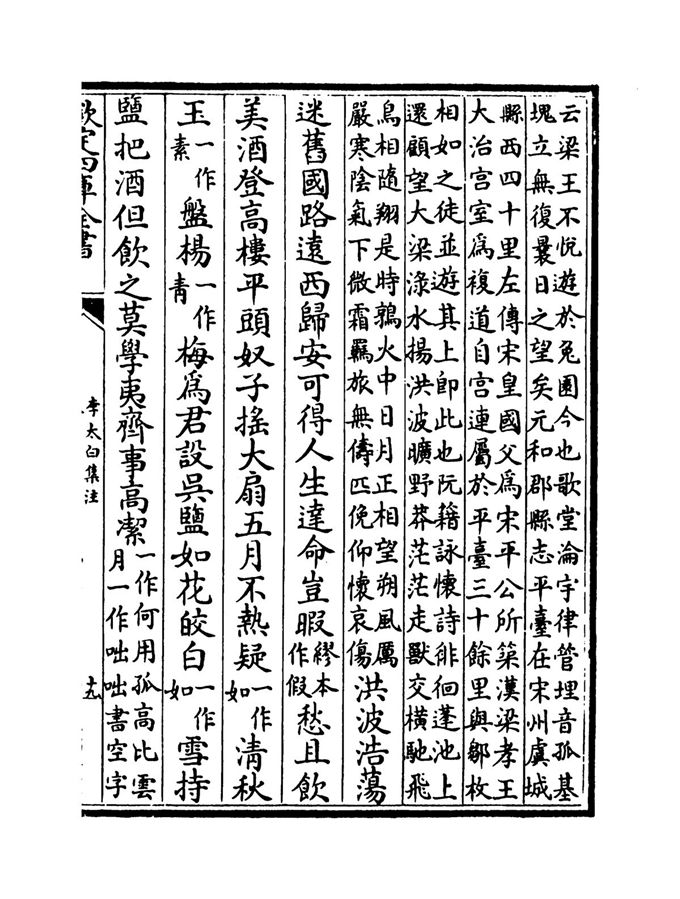 云梁王不悅遊於兔園今也歌堂淪宇律管埋音孤基
塊立無復曩日之望矣元和郡縣志平臺在宋州虞城
縣西四十里左傳宋皇國父為宋平公所築漢梁孝王
大治宫室為複道自宫連屬於平臺三十餘里與鄒枚
相如之徒並遊其上即此也阮籍詠懷詩徘徊蓬池上
還顧望大梁淥水揚洪波曠野莽茫茫走獸交橫馳飛
鳥相隨翔是時鶉火中日月正相望朔風厲
嚴寒陰氣下微霜羈旅無儔匹俛仰懷哀傷
洪波浩蕩
迷舊國路遠西歸安可得人生達命豈暇
繆本
作假
愁且飲
美酒登高樓平頭奴子搖大扇五月不熱疑
一作
如
清秋
玉
一作
素
盤楊
一作
青
梅為君設吳鹽如花皎白
一作
如
雪持
鹽把酒但飲之莫學夷齊事高潔
一作何用孤高比雲
月一作咄咄書空字
欽定四庫全書
李太白集注